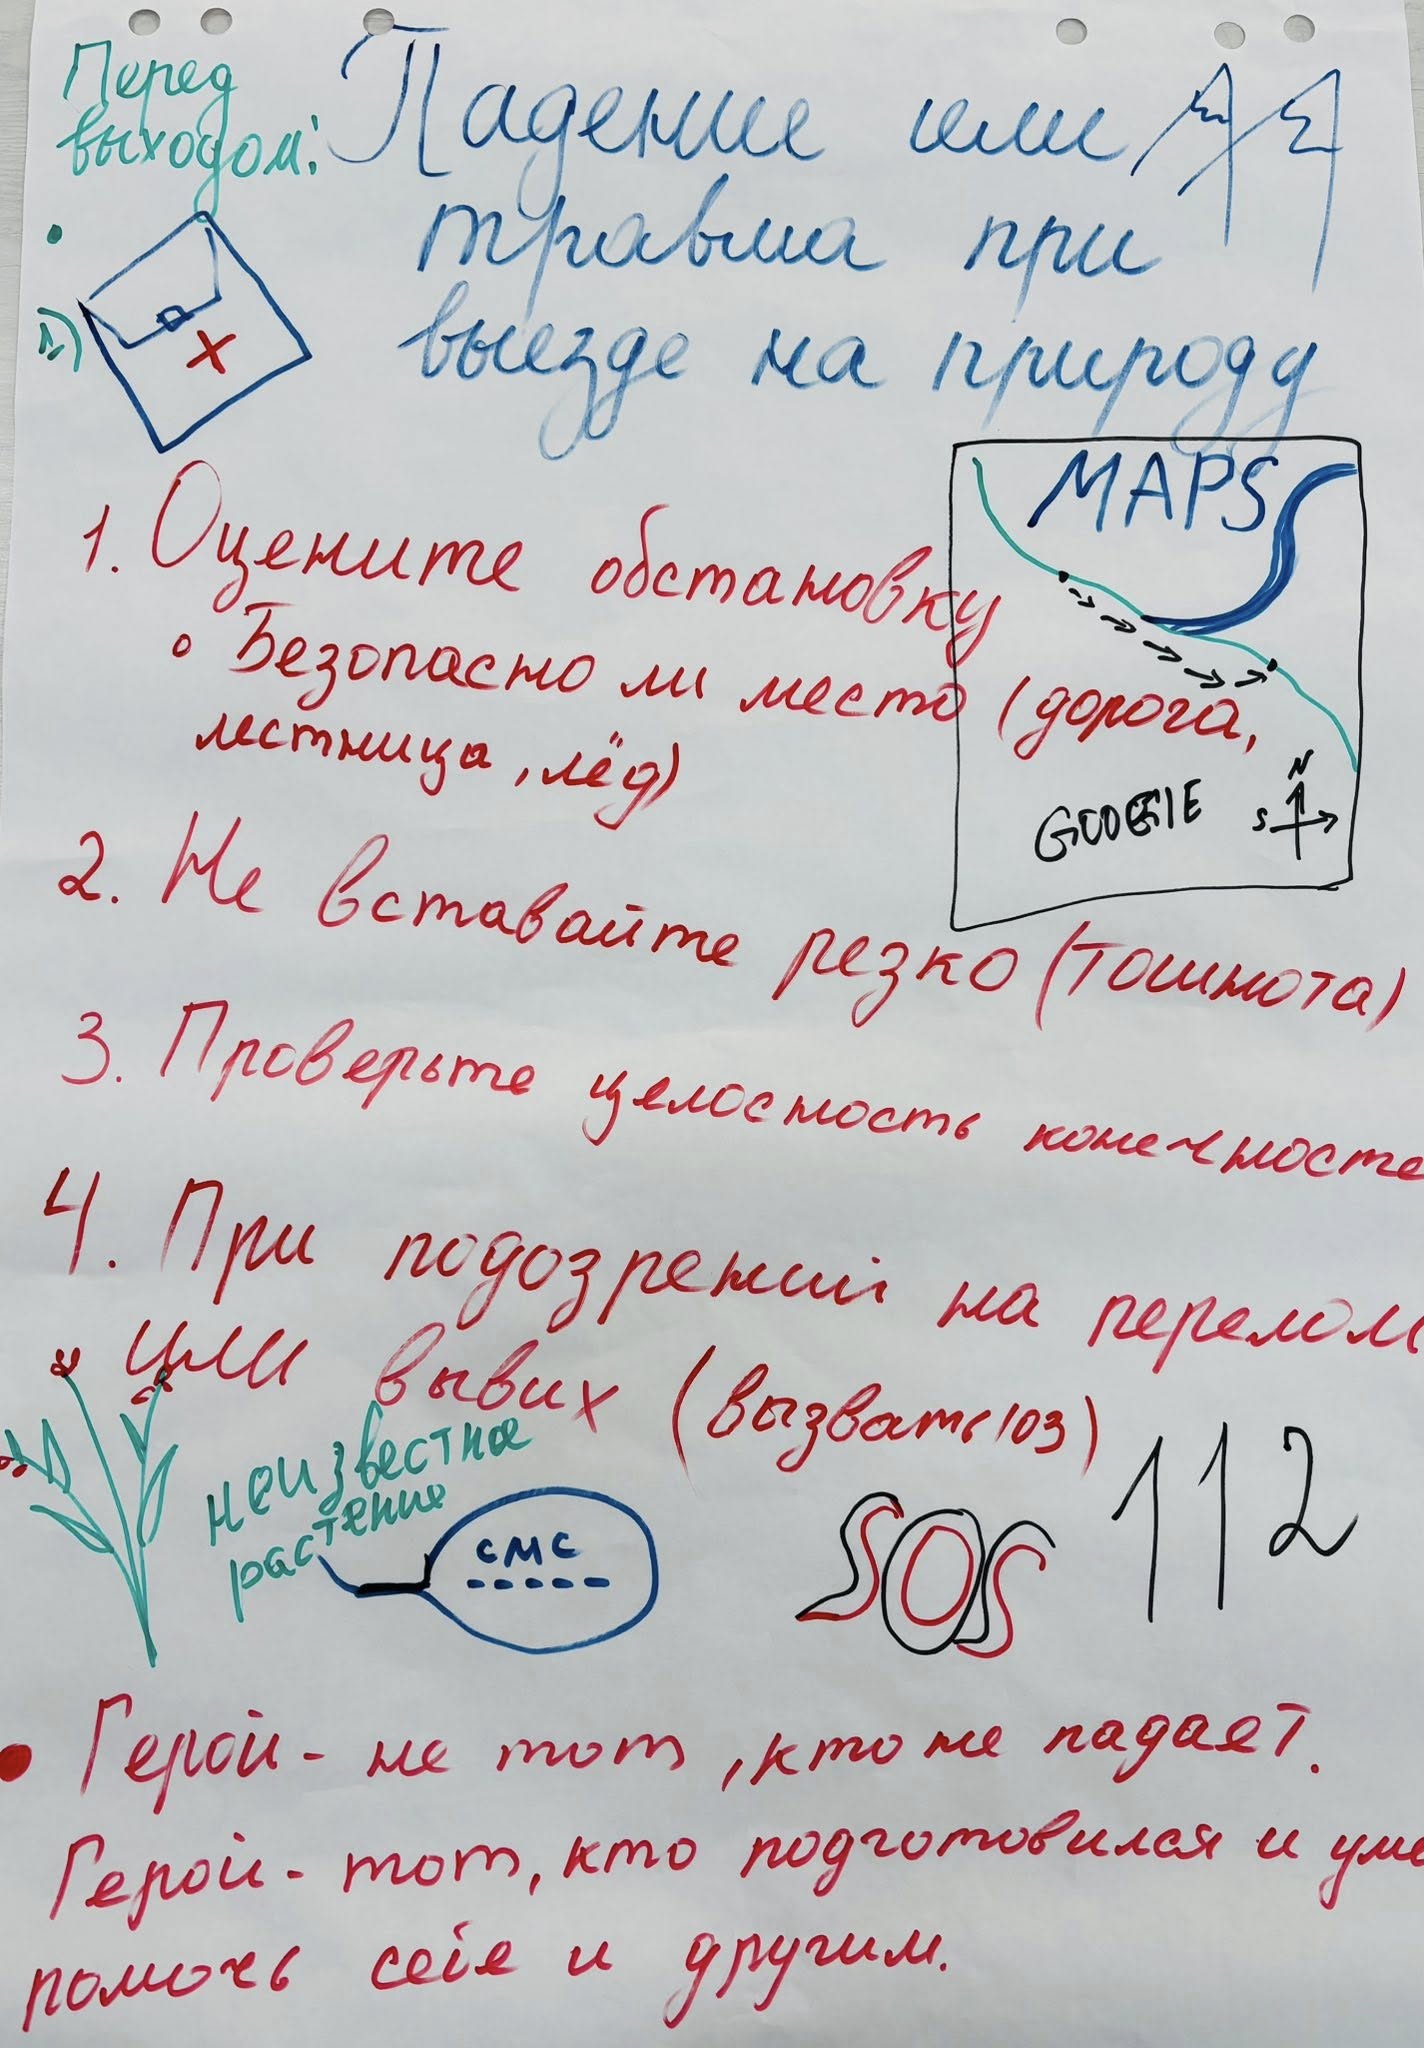 Перед
выходом:
Падение или
травма при
выезде на природу
1)
X
MAPS
1. Оцените обстановку
• Безопасно ли место (дорога,
лестница, лёд)
GOOGLE
N
S
2. Не вставайте резко (тошнота)
3. Проверьте целосность конечносте
4. При подозрений на перелом
или вывих (вызвать 103)
неизвестное
растение
смс
SOS
112
• Герой - не тот, кто не падает.
Герой - тот, кто подготовился и уме
помочь себе и другим.